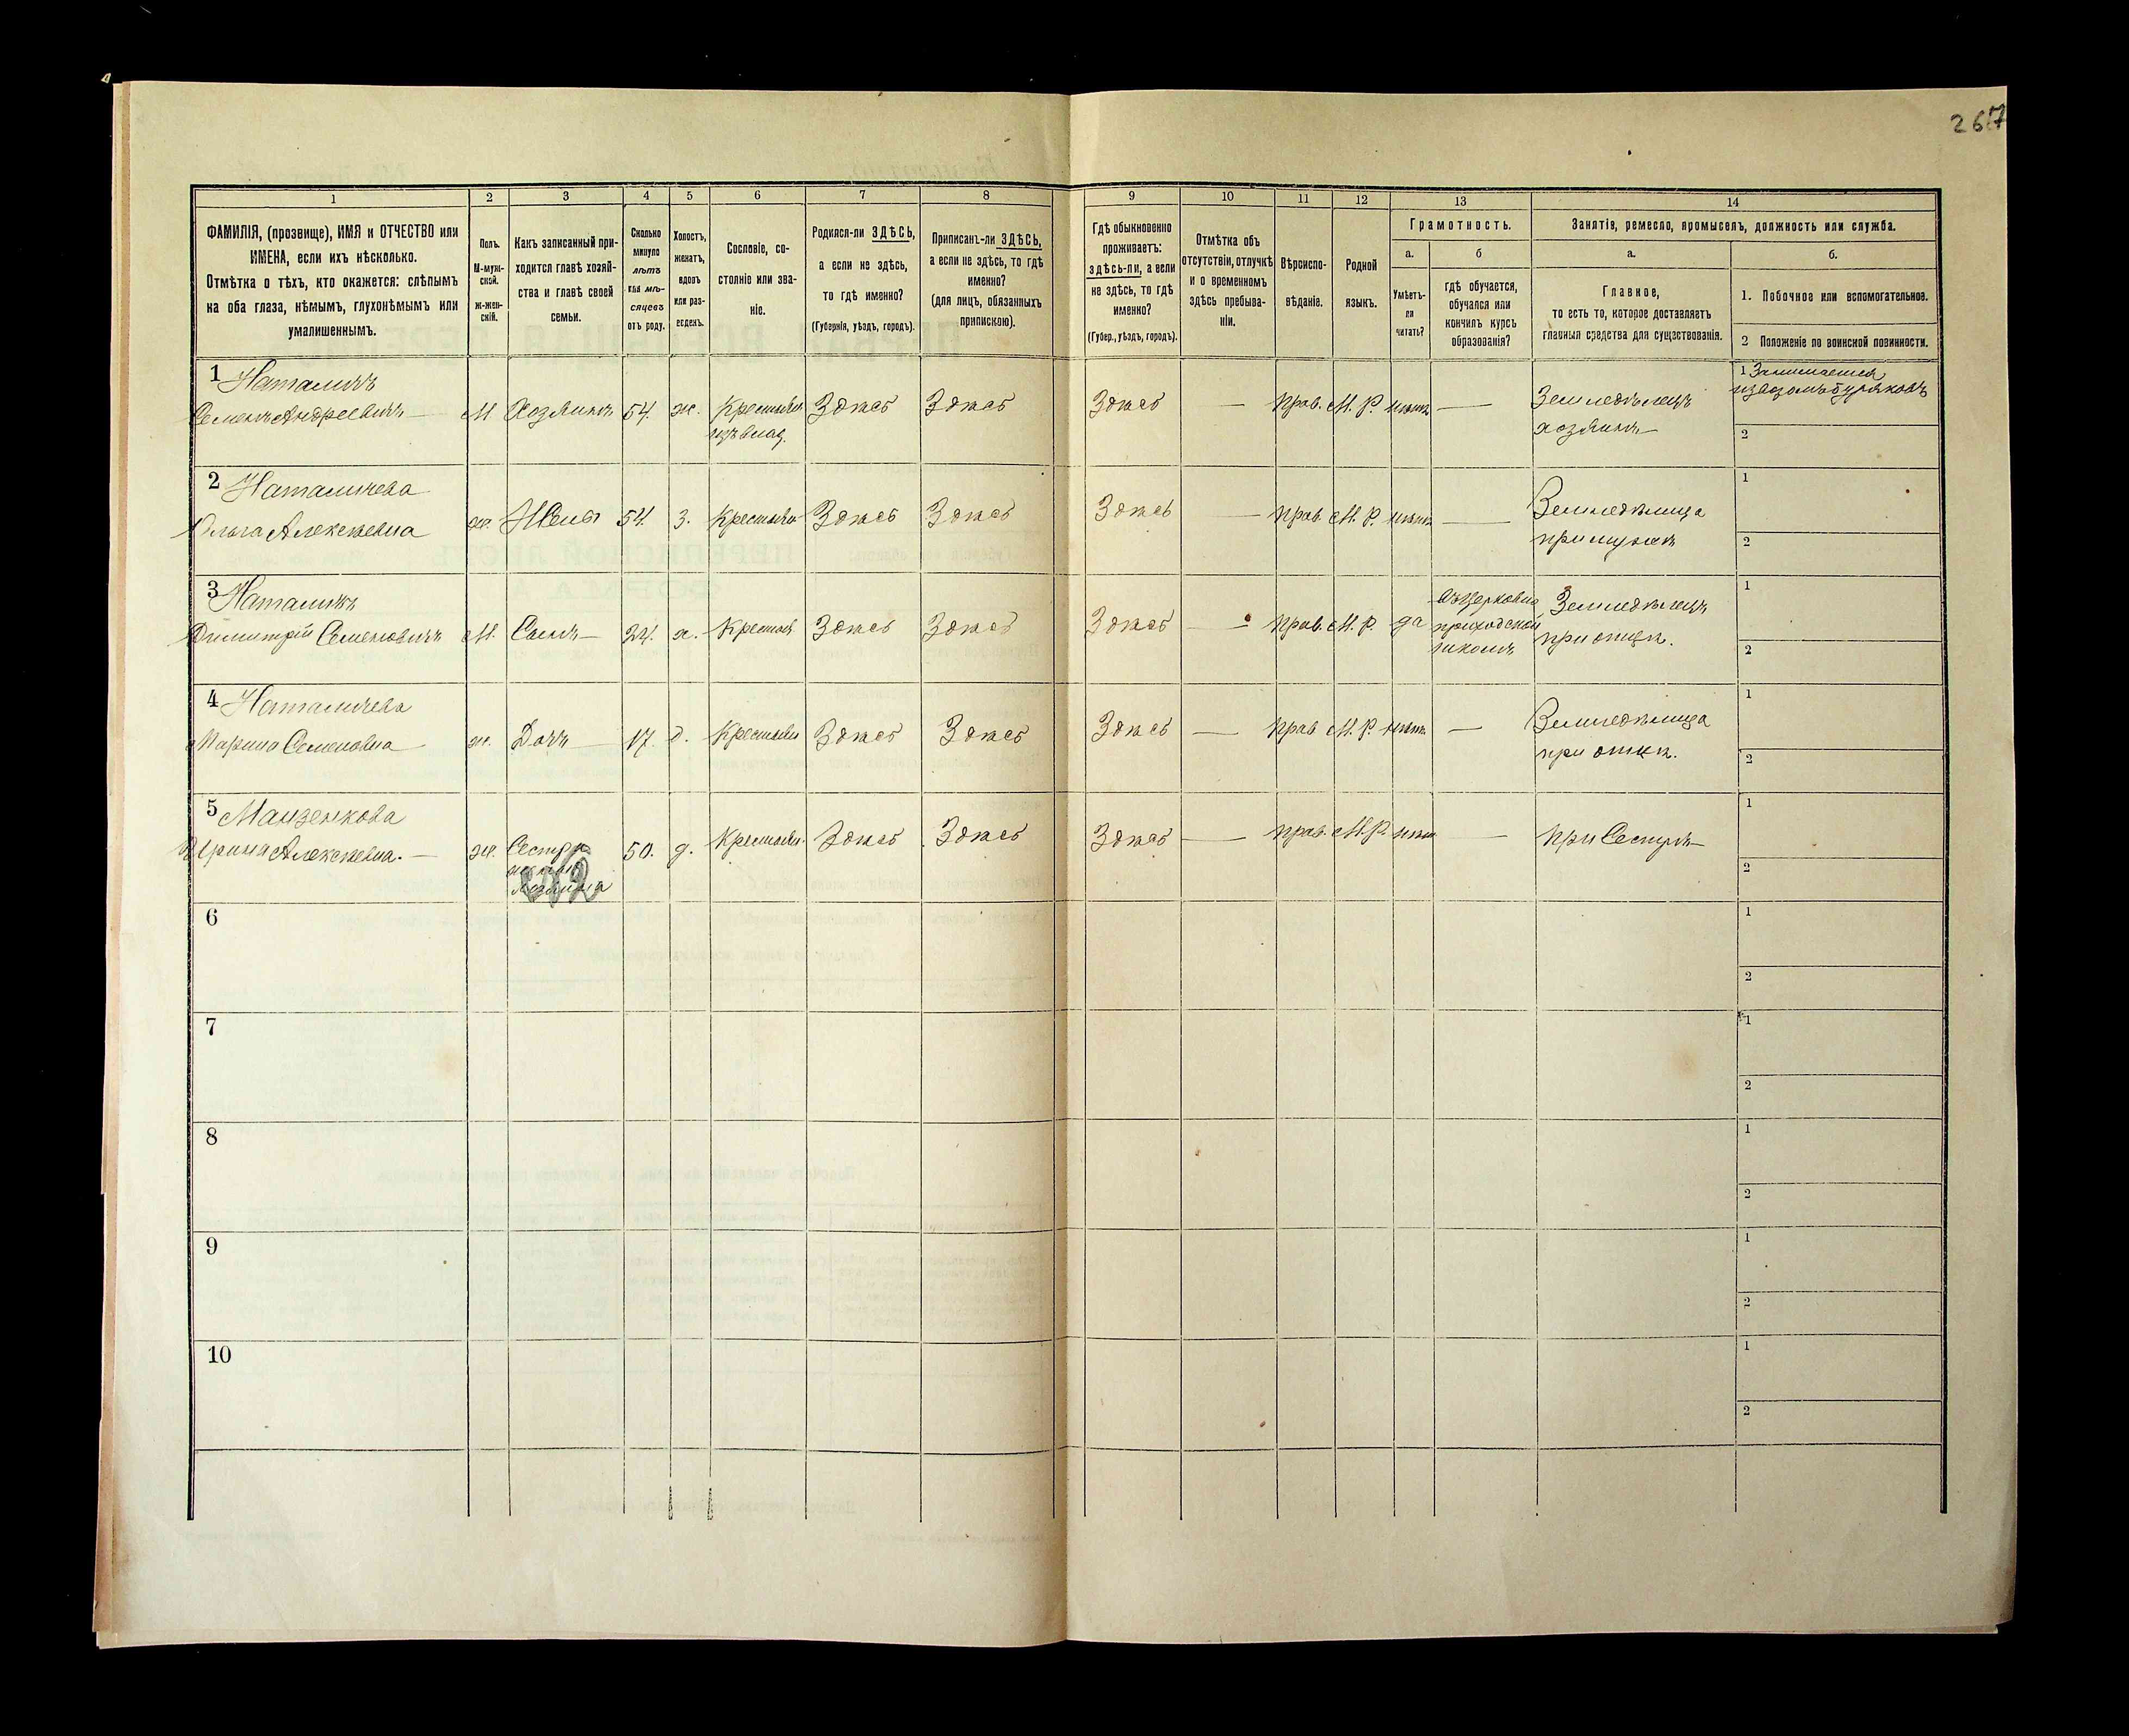 267
1 2 3 4 5 6 7 8 9 10 11 12 13 14
ФАМИЛІЯ, (прозвище), ИМЯ и ОТЧЕСТВО или
ИМЕНА, если ихъ нѣсколько.
Отмѣтка о тѣхъ, кто окажется: слѣпымъ
на оба глаза, нѣмымъ, глухонѣмымъ или
умалишеннымъ.
Полъ.
М-муж-
ской.
ж-жен-
скій.
Какъ записанный при-
ходится главѣ хозяй-
ства и главѣ своей
семьи.
Сколько
минуло
лѣтъ
или мѣ-
сяцевъ
отъ роду.
Холостъ,
женатъ,
вдовъ
или раз-
веденъ.
Сословіе, со-
стояніе или зва-
ніе.
Родился-ли ЗДѢСЬ,
а если не здѣсь,
то гдѣ именно?
(Губернія, уѣздъ, городъ).
Приписанъ-ли ЗДѢСЬ,
а если не здѣсь, то гдѣ
именно?
(для лицъ, обязанныхъ
припискою).
Гдѣ обыкновенно
проживаетъ:
здѣсь-ли, а если
не здѣсь, то гдѣ
именно?
(Губер., уѣздъ, городъ).
Отмѣтка объ
отсутствіи, отлучкѣ
и о временномъ
здѣсь пребыва-
ніи.
Вѣроиспо-
вѣданіе.
Родной
языкъ.
Грамотность.
а.
Умѣетъ-
ли
читать?
б
гдѣ обучается,
обучался или
кончилъ курсъ
образованія?
Занятіе, ремесло, промыселъ, должность или служба.
а.
Главное,
то есть то, которое доставляетъ
главныя средства для существованія.
б.
1. Побочное или вспомогательное.
2 Положеніе по воинской повинности.
1 Наталичъ
Семенъ Андреевичъ — М Хозяинъ 54. ж. Крестьян
изъ влад. Здѣсь Здѣсь Здѣсь — прав. М. Р. нѣтъ — Земледѣлецъ
хозяинъ
1 Занимается
извозомъ буряковъ
2
2 Наталичева
Ольга Алексѣевна ж. Жена 54. з. Крестьян Здѣсь Здѣсь Здѣсь — прав. М. Р. нѣтъ — Земледѣлица
при мужѣ
1
2
3 Наталичъ
Димитрій Семеновичъ М. Сынъ — 24. х. Крестьян Здѣсь Здѣсь Здѣсь — прав. М. Р. да
въ Церковно
приходской
школѣ
Земледѣлецъ
при отцѣ.
1
2
4 Наталичева
Марина Семеновна ж. Дочь — 17. д. Крестьян Здѣсь Здѣсь Здѣсь — прав М. Р. нѣтъ — Земледѣлица
при отцѣ.
1
2
5 Манзенкова
Ирина Алексѣевна. — ж. Сестра
жены
хозяина 50. д. Крестьян. Здѣсь Здѣсь Здѣсь — прав. М. Р. нѣтъ — при Сестрѣ
1
2
6
1
2
7
1
2
8
1
2
9
1
2
10
1
2